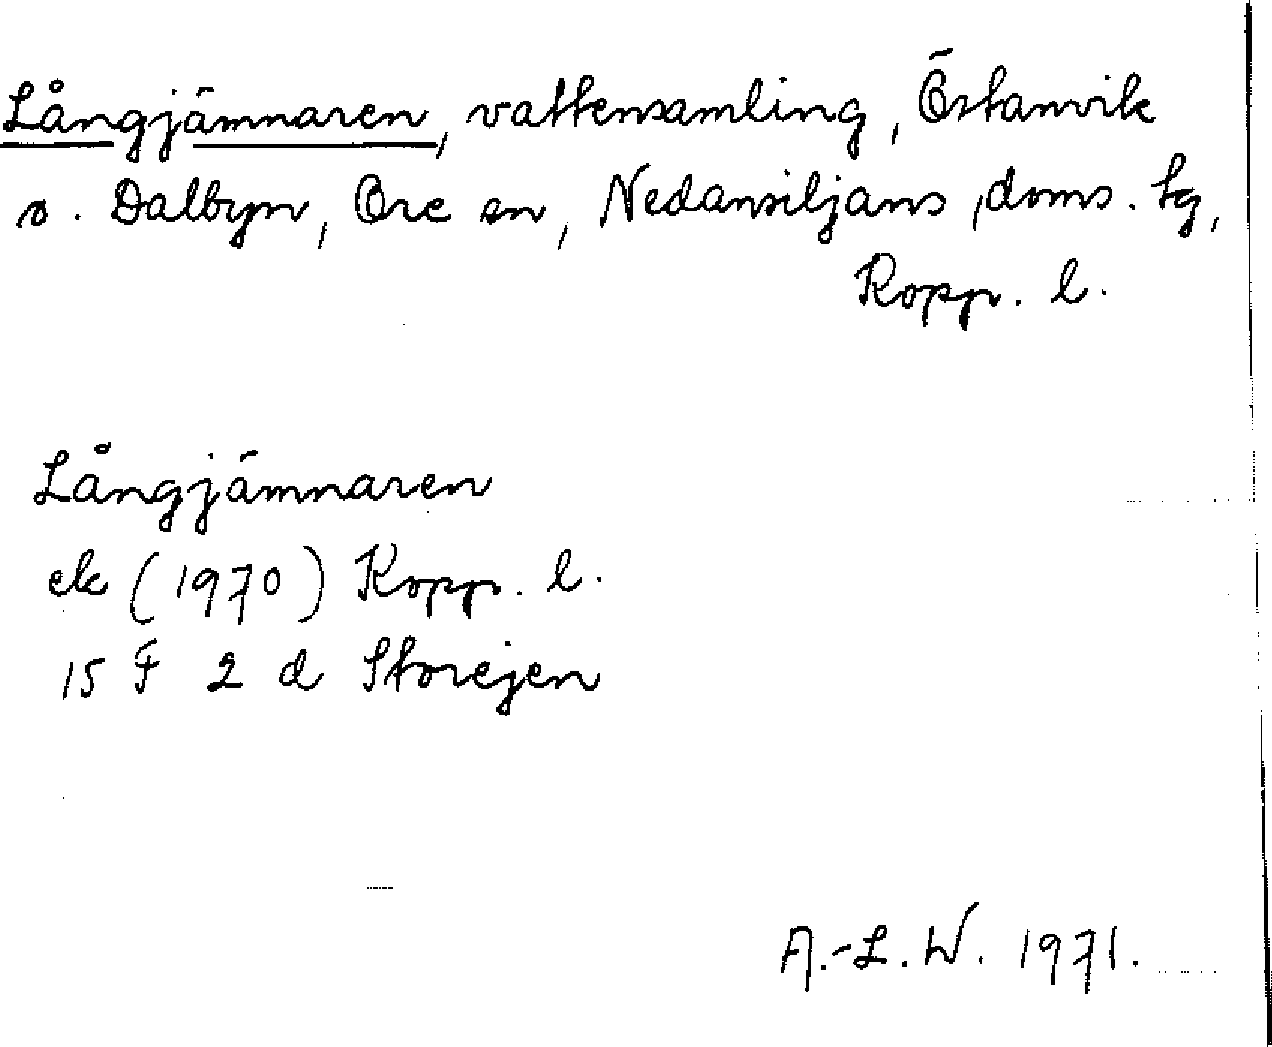 Långjämnaren, vattensamling, Östanvik
o. Dalbyn, Ore sn, Nedansiljans doms. tg,
Kopp. l.
Långjämnaren
ek (1970) Kopp. l.
15 F 2 d Storejen
A.-L. W. 1971.